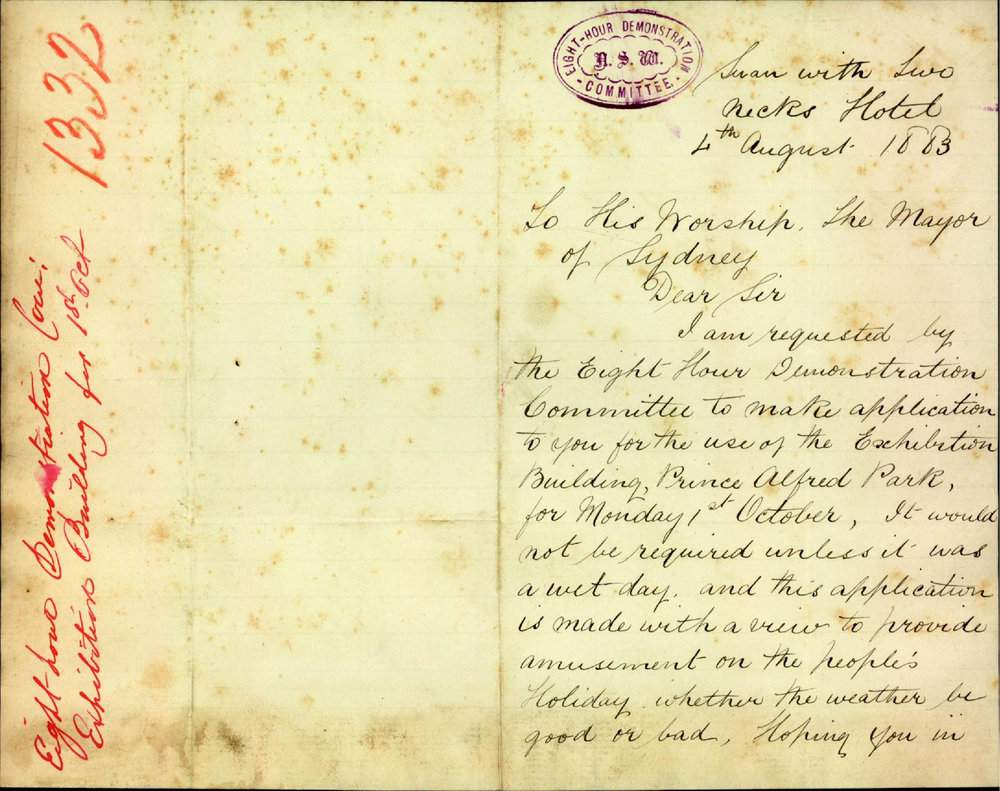 1332
Eight-hour Demonstration Com:
Exhibition Building for 1st Oct
EIGHT-HOUR DEMONSTRATION
N.S.W.
- COMMITTEE. -
Swan with Two
Necks Hotel
4th August 1883
To His Worship, The Mayor
of Sydney
Dear Sir
I am requested by
the Eight Hour Demonstration
Committee to make application
to you for the use of the Exhibition
Building, Prince Alfred Park,
for Monday 1st October, It would
not be required unless it was
a wet day, and this application
is made with a view to provide
amusement on the people's
Holiday whether the weather be
good or bad, Hoping you in